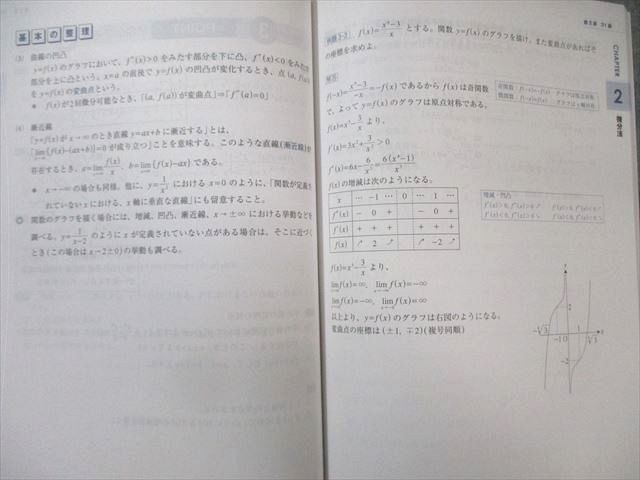 基本の整理
(3) 曲線の凹凸
y=f(x)のグラフにおいて, f″(x)>0をみたす部分を下に凸, f″(x)<0をみたす
部分を上に凸という。x=aの前後でy=f(x)の凹凸が変化するとき, 点(a, f(a))
をy=f(x)の変曲点という。
f(x)が2回微分可能なとき, 「(a, f(a))が変曲点」⇒「f″(a)=0」
(4) 漸近線
「y=f(x)がx→∞のとき直線y=ax+bに漸近する」とは,
「lim{f(x)-(ax+b)}=0が成り立つ」ことを意味する。このような直線(漸近線)が
存在するとき, a=lim f(x)/x, b=lim{f(x)-ax}である。
x→-∞の場合も同様。他に, y=1/x におけるx=0のように, 「関数が定義
されていないxにおける, x軸に垂直な直線」にも留意すること。
関数のグラフを描く場合には, 増減, 凹凸, 漸近線, x→±∞における挙動などを
調べる。y=1/(x-2) のようにxが定義されていない点がある場合は, そこに近づく
とき(この場合はx→2±0)の挙動も調べる。
第2章 31講
CHAPTER
2
微分法
例題3-3 f(x)=(x⁴-3)/x とする。関数y=f(x)のグラフを描け。また変曲点があればそ
の座標を求めよ。
解答
f(-x)=(x⁴-3)/(-x)=-f(x)であるからf(x)は奇関数
で, よってy=f(x)のグラフは原点対称である。
奇関数 f(-x)=-f(x)…グラフは原点対称
偶関数 f(-x)=f(x)…グラフはy軸対称
f(x)=x³-3/x より,
f′(x)=3x²+3/x²>0
f″(x)=6x-6/x³=6(x⁴-1)/x³
f(x)の増減は次のようになる。
x … -1 … 0 … 1 …
f″(x) - 0 + - 0 +
f′(x) + + + + + +
f(x) 2 -2
増減・凹凸
f(x)=x³-3/x より,
lim f(x)=∞, lim f(x)=-∞
lim f(x)=-∞, lim f(x)=∞
以上より, y=f(x)のグラフは右図のようになる。
変曲点の座標は(±1, ∓2)(複号同順)
y
2
-⁴√3
-1 0
1
⁴√3
x
-2